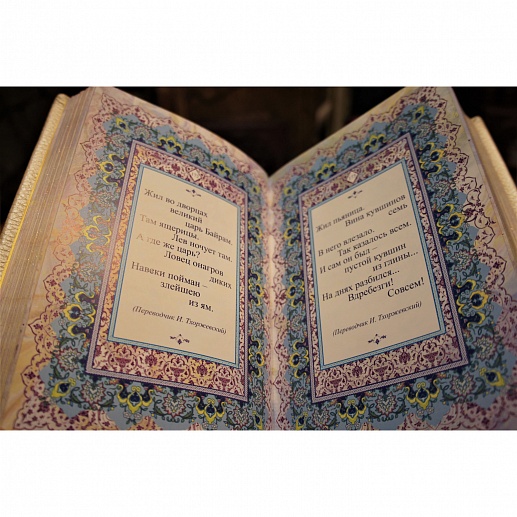 Жил во дворцах
великий
царь Байрам.
Там ящерицы.
Лев ночует там.
А где же царь?
Ловец онагров
диких
Навеки пойман –
злейшею
из ям.
(Переводчик И. Тхоржевский)
Жил пьяница.
Вина кувшинов
семь
В него влезало.
Так казалось всем.
И сам он был –
пустой кувшин
из глины...
На днях разбился...
Вдребезги!
Совсем!
(Переводчик И. Тхоржевский)